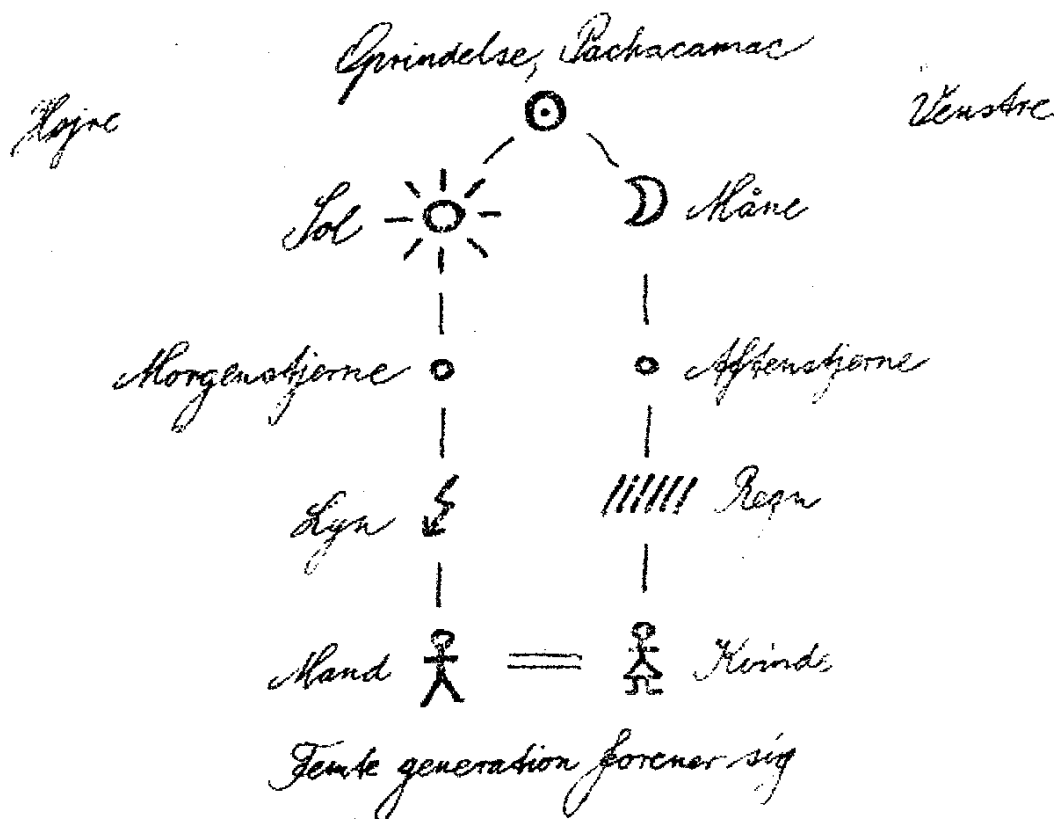 Oprindelse, Pachacamac
Højre Venstre
Sol Måne
Morgenstjerne Aftenstjerne
Lyn Regn
Mand Kvinde
Femte generation forener sig